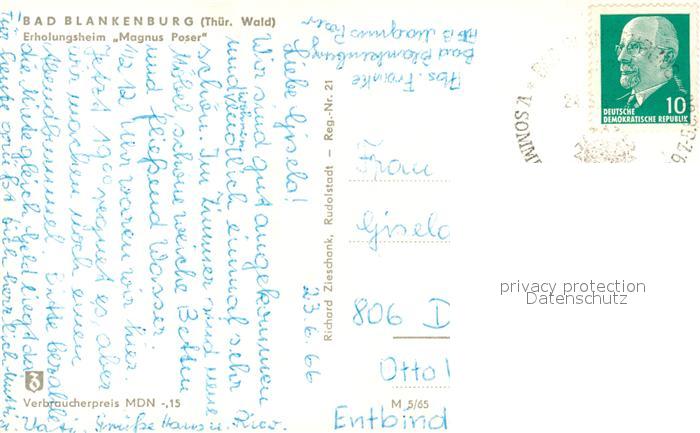 BAD BLANKENBURG (Thür. Wald)
Erholungsheim „Magnus Poser"
Abs. Franke
Bad Blankenburg
Magnus Poser
23.6.66
Liebe Gisela!
Wir sind gut angekommen
und einmal sehr
schön. Im Zimmer sind neue
Möbel, schöne weiche Betten
und fließend Wasser.
12 12 Uhr waren wir hier.
Jetzt 19⁰⁰ regnet es, aber
wir machen noch einen
Abendbummel. Bitte bezahle
die Miete gleich, Geld liegt da
Für heute grüßt dich herzlich Mutti
u. Vati. Grüße Hans u. Rico.
Richard Zieschank, Rudolstadt – Reg.-Nr. 21
Verbraucherpreis MDN -,15
M 5/65
Frau
Gisela
806 D
Otto
Entbind
10
DEUTSCHE
DEMOKRATISCHE REPUBLIK
privacy protection
Datenschutz